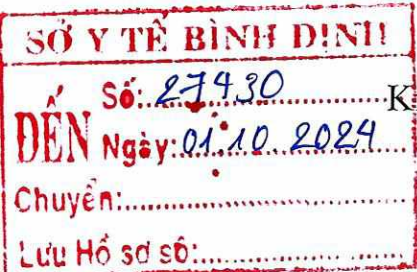 SỞ Y TẾ BÌNH ĐỊNH
ĐẾN
Số: 27430
K
Ngày: 01.10.2024
Chuyển:
Lưu Hồ sơ số: